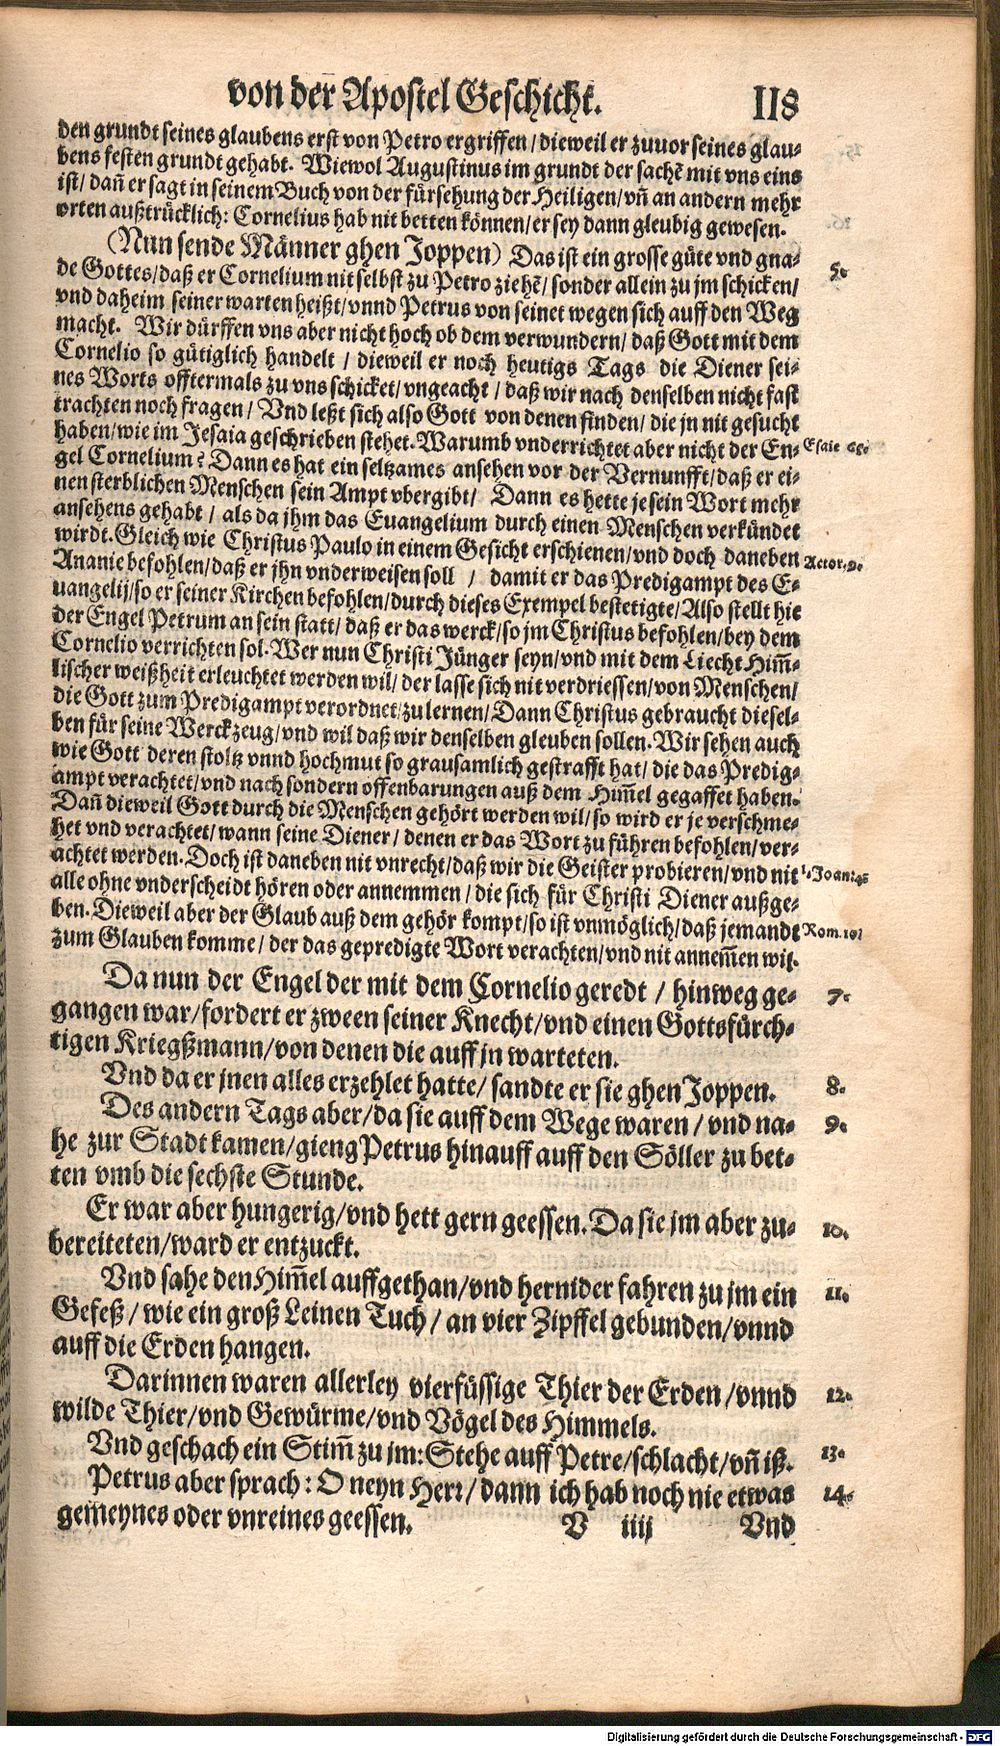 von der Apostel Geschicht. 118
den grundt seines glaubens erst von Petro ergriffen / dieweil er zuuor seines glau-
bens festen grundt gehabt. Wiewol Augustinus im grundt der sachē mit vns eins
ist / dañ er sagt in seinem Buch von der fürsehung der Heiligen / vñ an andern mehr
orten außtrücklich: Cornelius hab nit betten können / er sey dann gleubig gewesen.
(Nun sende Männer ghen Joppen) Das ist ein grosse güte vnd gna- 5.
de Gottes / daß er Cornelium nit selbst zu Petro ziehē / sonder allein zu jm schicken /
vnd daheim seiner warten heißt / vnnd Petrus von seinet wegen sich auff den Weg
macht. Wir dürffen vns aber nicht hoch ob dem verwundern / daß Gott mit dem
Cornelio so gütiglich handelt / dieweil er noch heutigs Tags die Diener sei-
nes Worts offtermals zu vns schicket / vngeacht / daß wir nach denselben nicht fast
trachten noch fragen / Vnd leßt sich also Gott von denen finden / die jn nit gesucht
haben / wie im Jesaia geschrieben stehet. Warumb vnderrichtet aber nicht der En- Esaie 66.
gel Cornelium? Dann es hat ein seltzames ansehen vor der Vernunfft / daß er ei-
nen sterblichen Menschen sein Ampt vbergibt / Dann es hette je sein Wort mehr
ansehens gehabt / als da jhm das Euangelium durch einen Menschen verkündet
wirdt. Gleich wie Christus Paulo in einem Gesicht erschienen / vnd doch daneben Actor. 9.
Ananie befohlen / daß er jhn vnderweisen soll / damit er das Predigampt des E-
uangelij / so er seiner Kirchen befohlen / durch dieses Exempel bestetigte / Also stellt hie
der Engel Petrum an sein statt / daß er das werck / so jm Christus befohlen / bey dem
Cornelio verrichten sol. Wer nun Christi Jünger seyn / vnd mit dem Liecht Him̃-
lischer weißheit erleuchtet werden wil / der lasse sich nit verdriessen / von Menschen /
die Gott zum Predigampt verordnet / zu lernen / Dann Christus gebraucht diesel-
ben für seine Werckzeug / vnd wil daß wir denselben gleuben sollen. Wir sehen auch
wie Gott deren stoltz vnnd hochmut so grausamlich gestrafft hat / die das Predig-
ampt verachtet / vnd nach sondern offenbarungen auß dem Him̃el gegaffet haben.
Dañ dieweil Gott durch die Menschen gehört werden wil / so wird er je verschme-
het vnd verachtet / wann seine Diener / denen er das Wort zu führen befohlen / ver-
achtet werden. Doch ist daneben nit vnrecht / daß wir die Geister probieren / vnd nit 1. Joan. 4.
alle ohne vnderscheidt hören oder annemmen / die sich für Christi Diener außge-
ben. Dieweil aber der Glaub auß dem gehör kompt / so ist vnmöglich / daß jemandt Rom. 10.
zum Glauben komme / der das gepredigte Wort verachten / vnd nit annem̃en wil.
Da nun der Engel der mit dem Cornelio geredt / hinweg ge- 7.
gangen war / fordert er zween seiner Knecht / vnd einen Gottsfürch-
tigen Kriegßmann / von denen die auff jn warteten.
Vnd da er jnen alles erzehlet hatte / sandte er sie ghen Joppen. 8.
Des andern Tags aber / da sie auff dem Wege waren / vnd na- 9.
he zur Stadt kamen / gieng Petrus hinauff auff den Söller zu bet-
ten vmb die sechste Stunde.
Er war aber hungerig / vnd hett gern geessen. Da sie jm aber zu- 10.
bereiteten / ward er entzuckt.
Vnd sahe den Him̃el auffgethan / vnd hernider fahren zu jm ein 11.
Gefeß / wie ein groß Leinen Tuch / an vier Zipffel gebunden / vnnd
auff die Erden hangen.
Darinnen waren allerley vierfüssige Thier der Erden / vnnd 12.
wilde Thier / vnd Gewürme / vnd Vögel des Himmels.
Vnd geschach ein Stim̃ zu jm: Stehe auff Petre / schlacht / vñ iß. 13.
Petrus aber sprach: O neyn Herr / dann ich hab noch nie etwas 14.
gemeynes oder vnreines geessen.
V iiij Vnd
Digitalisierung gefördert durch die Deutsche Forschungsgemeinschaft - DFG